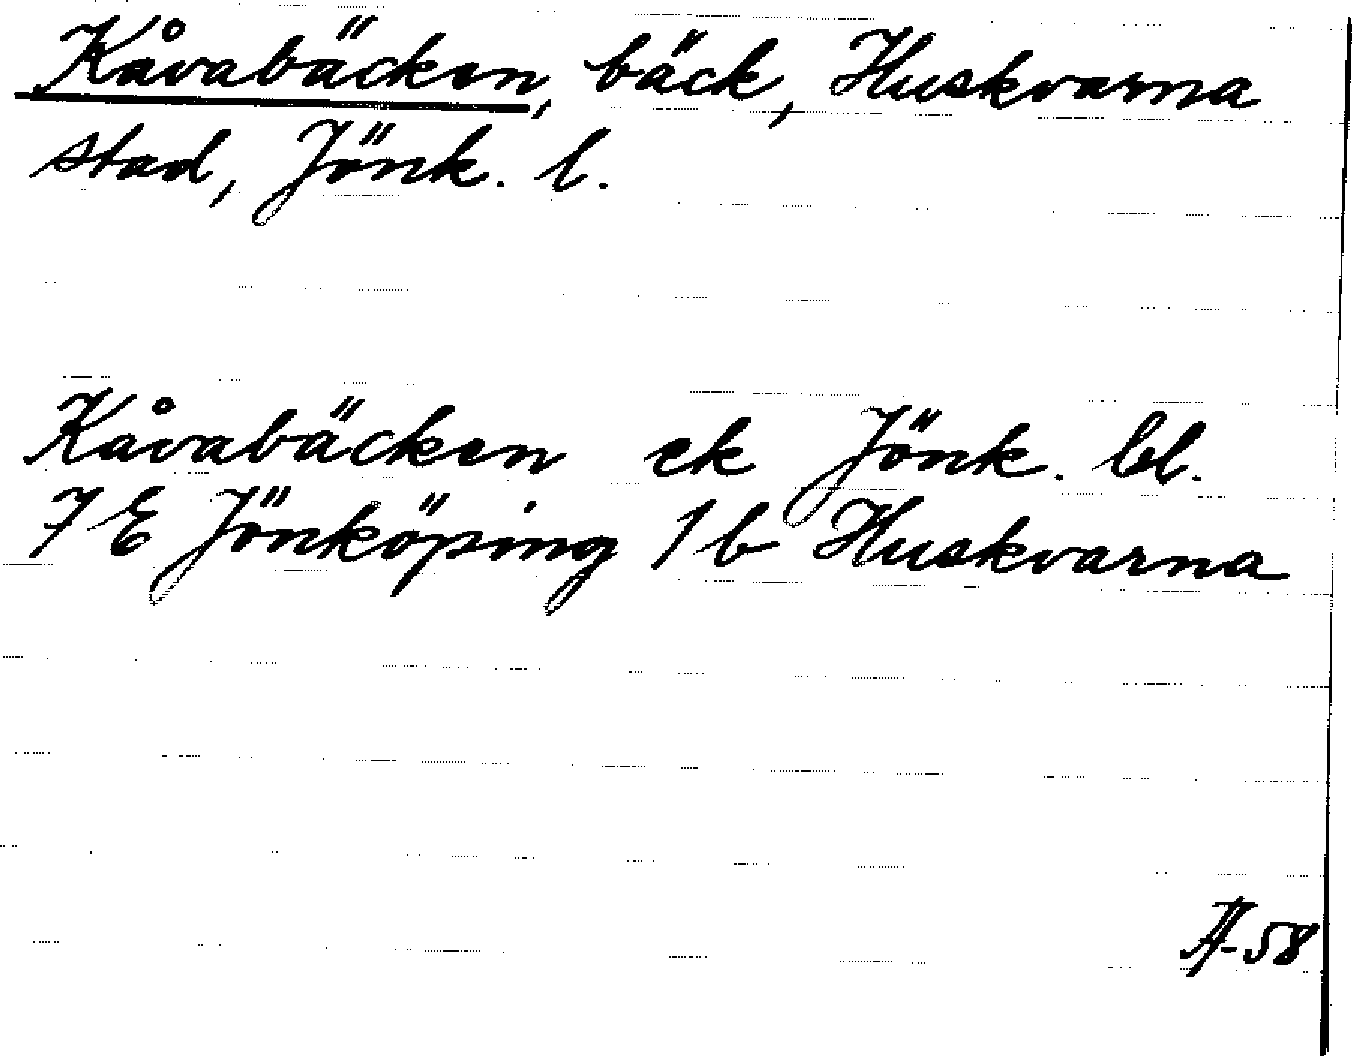 Kåvabäcken, bäck, Huskvarna
stad, Jönk. l.
Kåvabäcken ek Jönk. bl.
7E Jönköping 1b Huskvarna